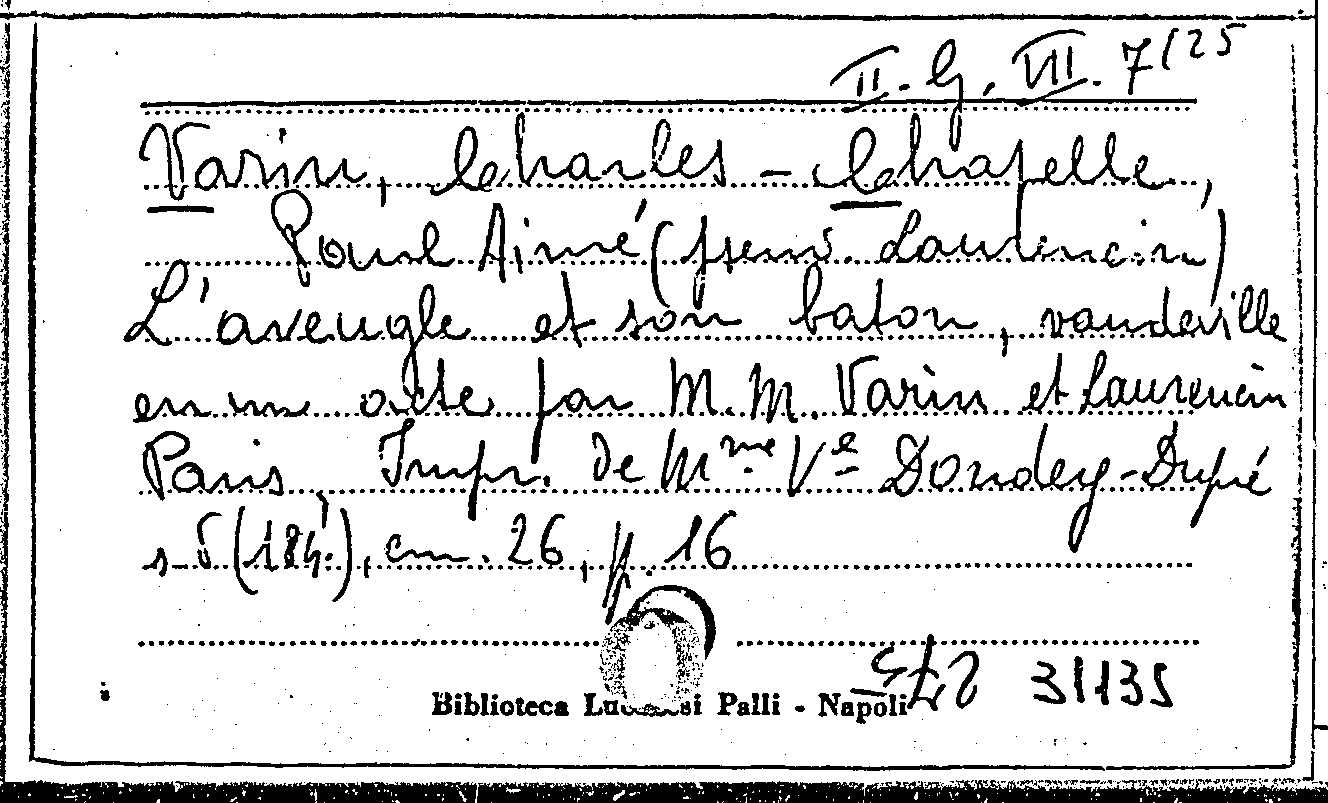 II. G. VII. 7/25
Varin, Charles - Chapelle,
Paul Aimé (pseud. Laurencin)
L'aveugle et son baton, vaudeville
en un acte par M. M. Varin et Laurencin
Paris, Impr. de Mme Ve Dondey-Dupré
s. d (184.), cm. 26, p. 16
Biblioteca Lucchesi Palli - Napoli
31135